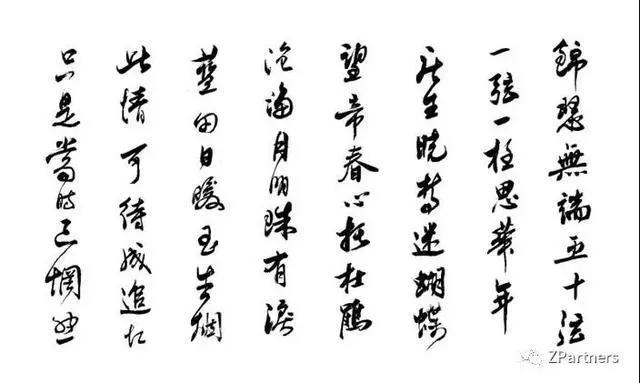 錦瑟無端五十弦
一弦一柱思華年
莊生曉夢迷蝴蝶
望帝春心托杜鵑
滄海月明珠有淚
藍田日暖玉生煙
此情可待成追忆
只是當時已惘然
ZPartners